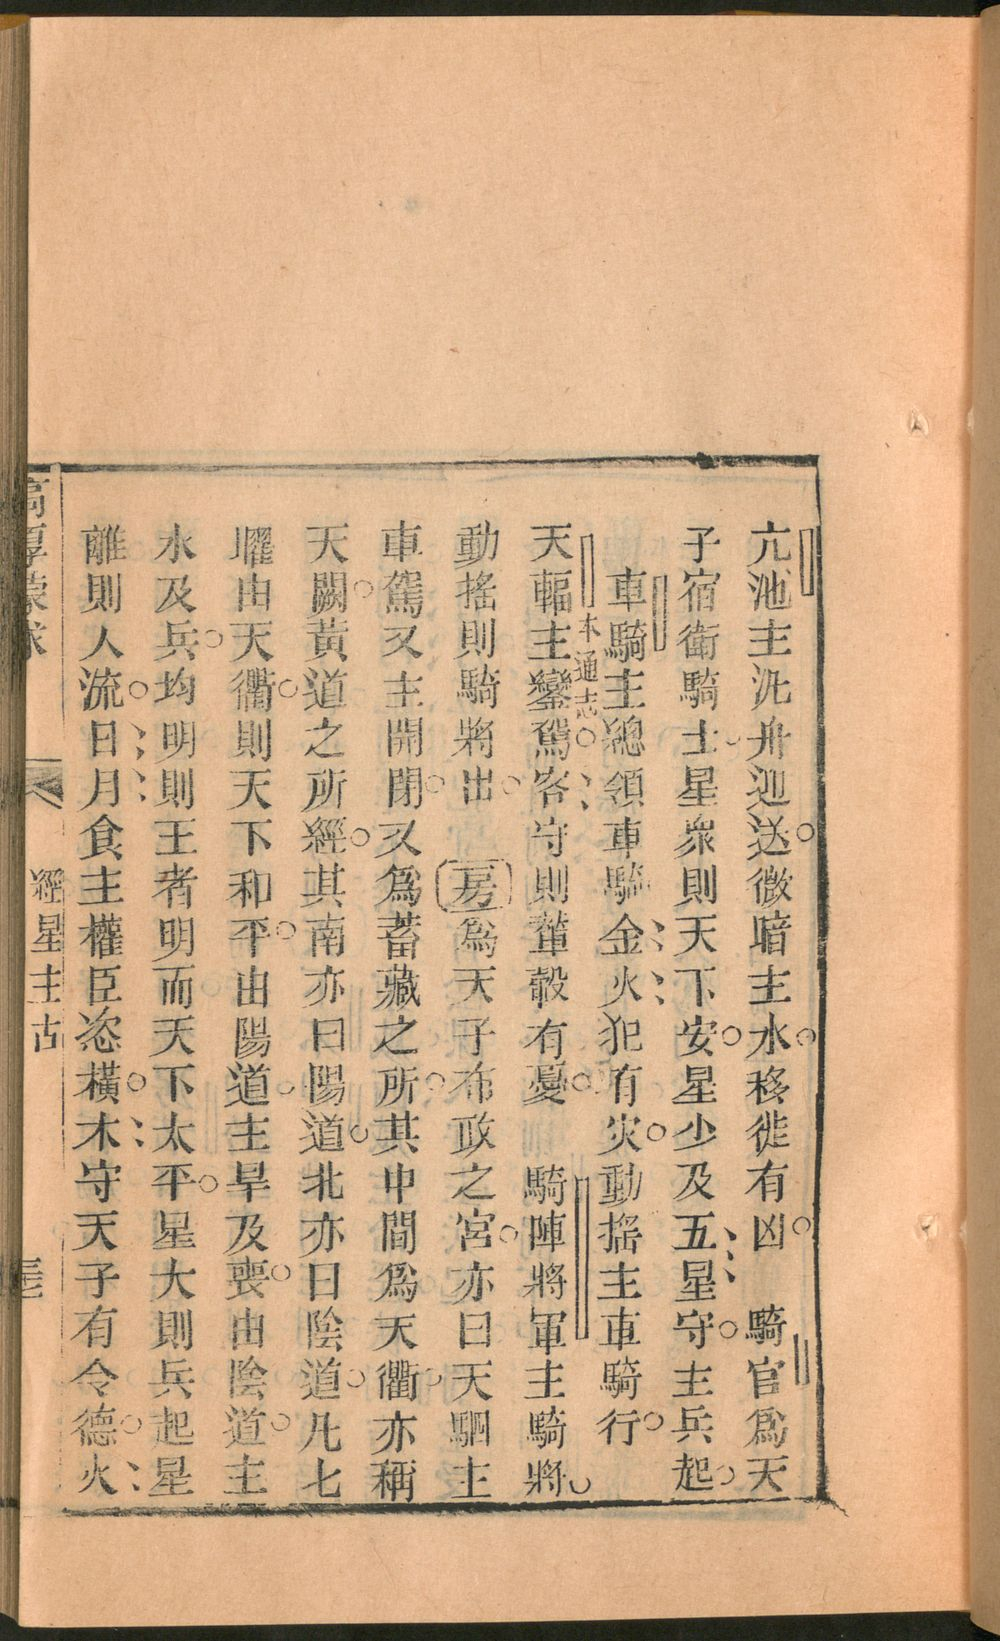 亢池主汎舟迎送微暗主水移徙有凶　騎官爲天
子宿衛騎士星衆則天下安星少及五星守主兵起
車騎主總領車騎金火犯有灾動搖主車騎行
天輻主鑾駕客守則輦轂有憂　騎陣將軍主騎將
本通志
動搖則騎將出　房爲天子布政之宮亦曰天駟主
車駕又主開閉又爲蓄藏之所其中間爲天衢亦稱
天闕黃道之所經其南亦曰陽道北亦曰陰道凡七
曜由天衢則天下和平由陽道主旱及喪由陰道主
水及兵均明則王者明而天下太平星大則兵起星
離則人流日月食主權臣恣橫木守天子有令德火
高厚蒙求
經星主占